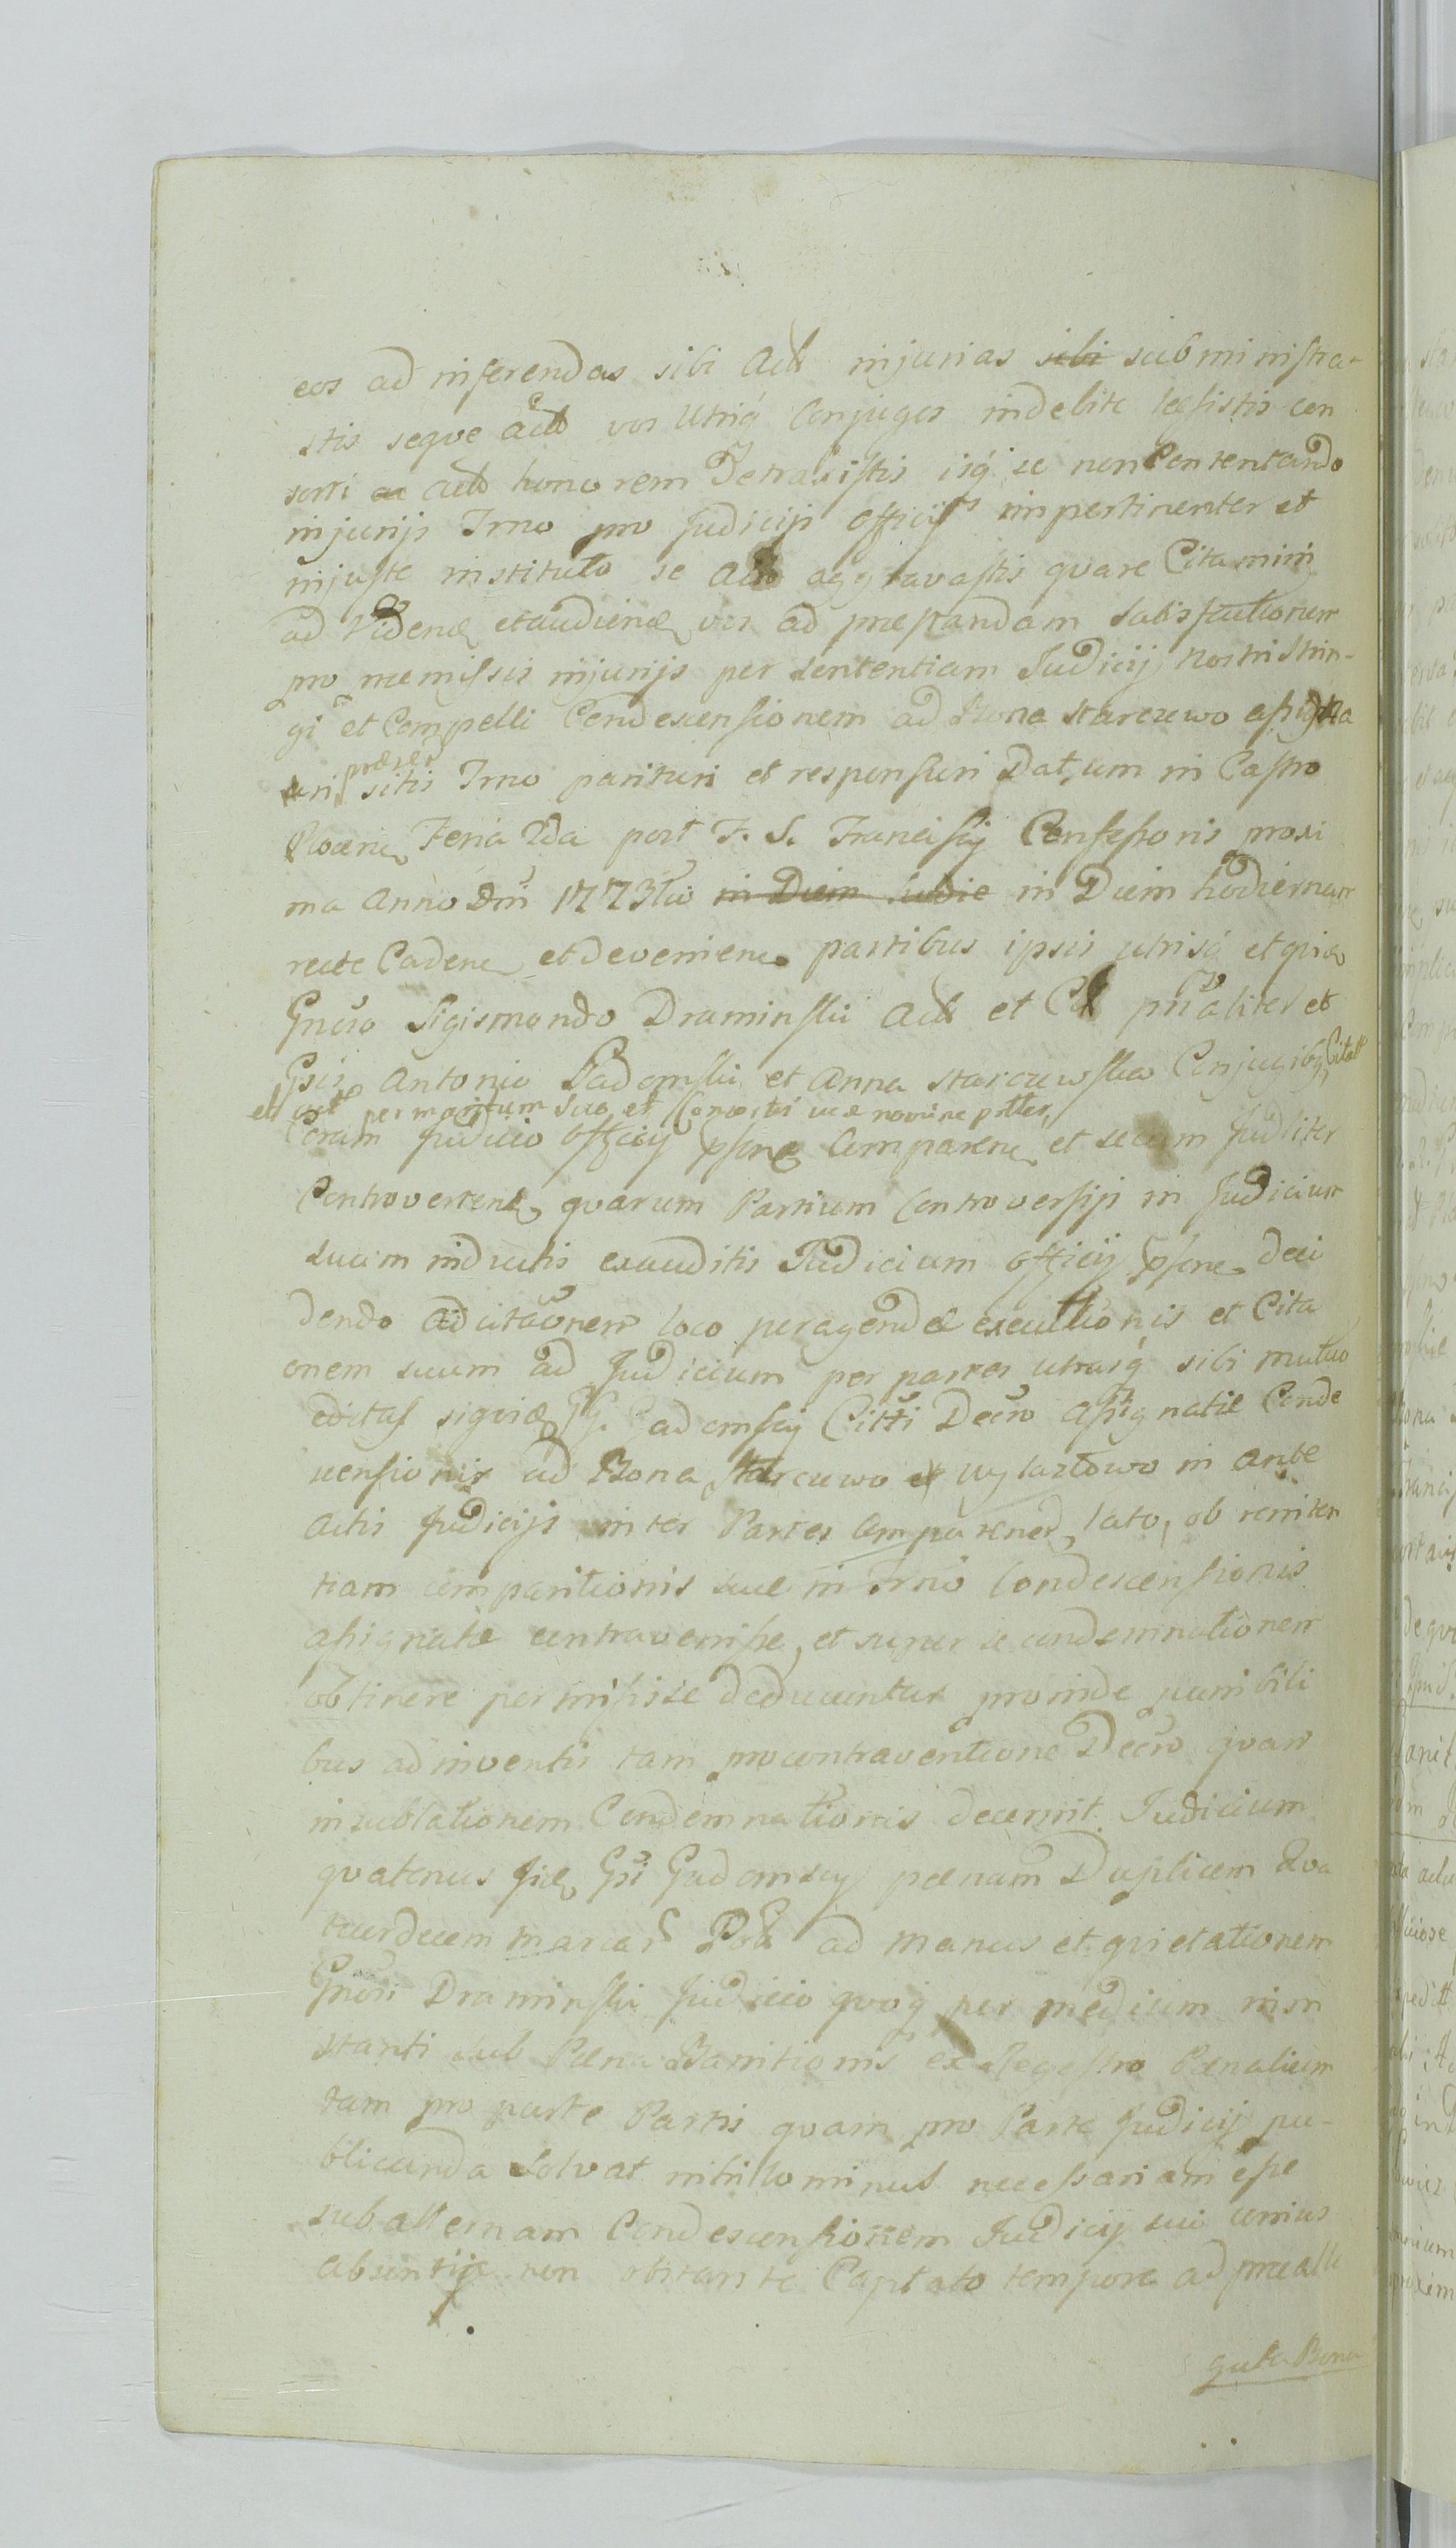 eos ad inferendas sibi Actt injurias sibi subministra-
stis seqve actt vos Utriq́ Conjuges indebite læsistis con
sorti ac actt honorem Detraxistis isq́ se non Contentando
injurijs Trno pro Judicijs officij impertinenter et
injuste instituto se Actt aggravastis qvare Citamini
ad Videnđ et audienđ vos ad præstandam Satisfactionem
pro præmissis injurijs per Sententiam Judicij Nostri Strin-
gi et Compelli Condescensionem ad Bona Starczewo assigna
ri præsen sitis Trno parituri et responsuri Datum in Castro
Plocen Feria 2da post F. S. Francisci Confessoris proxi
ma Anno Dni 1773tio in Diem hodie in Diem hodiernam
recte Caden et devenien partibus ipsis utrisq́ et qvidem
Gnoso Sigismondo Draminskii Actt et Ctt pnaliter et
Gsis Antonio Gadomskii et Anna Starczewska Conjugibq Citatt
et per maritum Suo et Consortis suæ nomine
Coram Judicio Officij psenti Comparen et secum Judliter
Controverten qvarum Partium Controversijs in Judicium
Suum inductis exauditis Judicium Officij psens deci
dendo adcitaonem loco peragendæ executionis et Cita
onem suum ad Judicium per partes utrasq́ sibi mutuo
editas siqvid GG. Gadomscy Citti Decro Assignatæ Conde
scensionis ad Bona Starczewo et Wylazłowo in ante
Actis Judicijs inter Partes Comparened lato, ob reniten
tiam comparitionis suæ in Trno Condescensionis
assignatæ contravenisse, et super se condemnationem
obtinere permisisse deducuntur proinde punibili
bus adinventis tam pro contraventione Decro qvam
in sublationem Condemnationis decernit Judicium
qvatenus Gsi Gadomscy pœnam Duplicem Qva
tuordecem marcar Pol ad manus et qvietationem
Gnosi Draminskii Judicio qvoq́ per medium nisn
stanti sub Pœna Banitionis ex Regestro Pœnalium
tam pro parte Partis qvam pro Parte Judicij pu-
blicanda Solvat nihillominus necessariam esse
subalternam Condescensionem Judicij sui unius
absentijs non obstante Captato tempore ad prælle
gata Bona